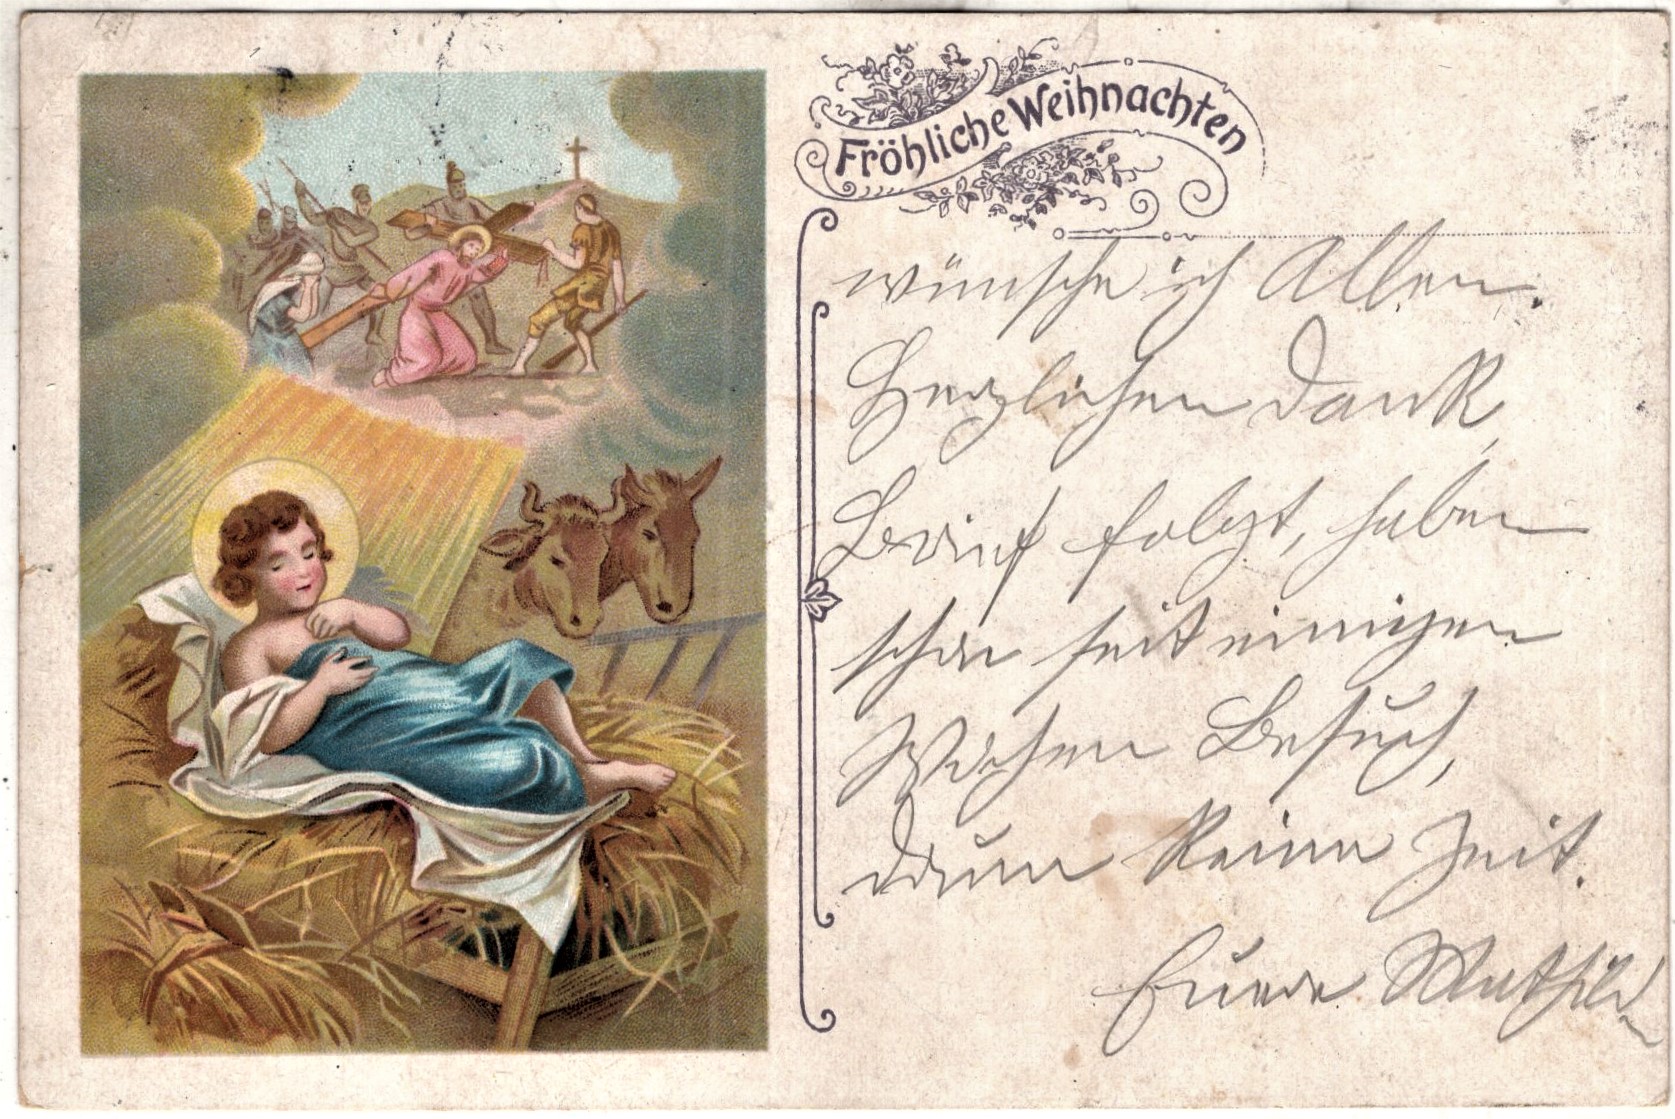 Fröhliche Weihnachten
wünsche ich Allen.
Herzlichen Dank,
Brief folgt, haben
schon seit einigen
Wochen Besuch,
drum keine Zeit.
Euere Mathild